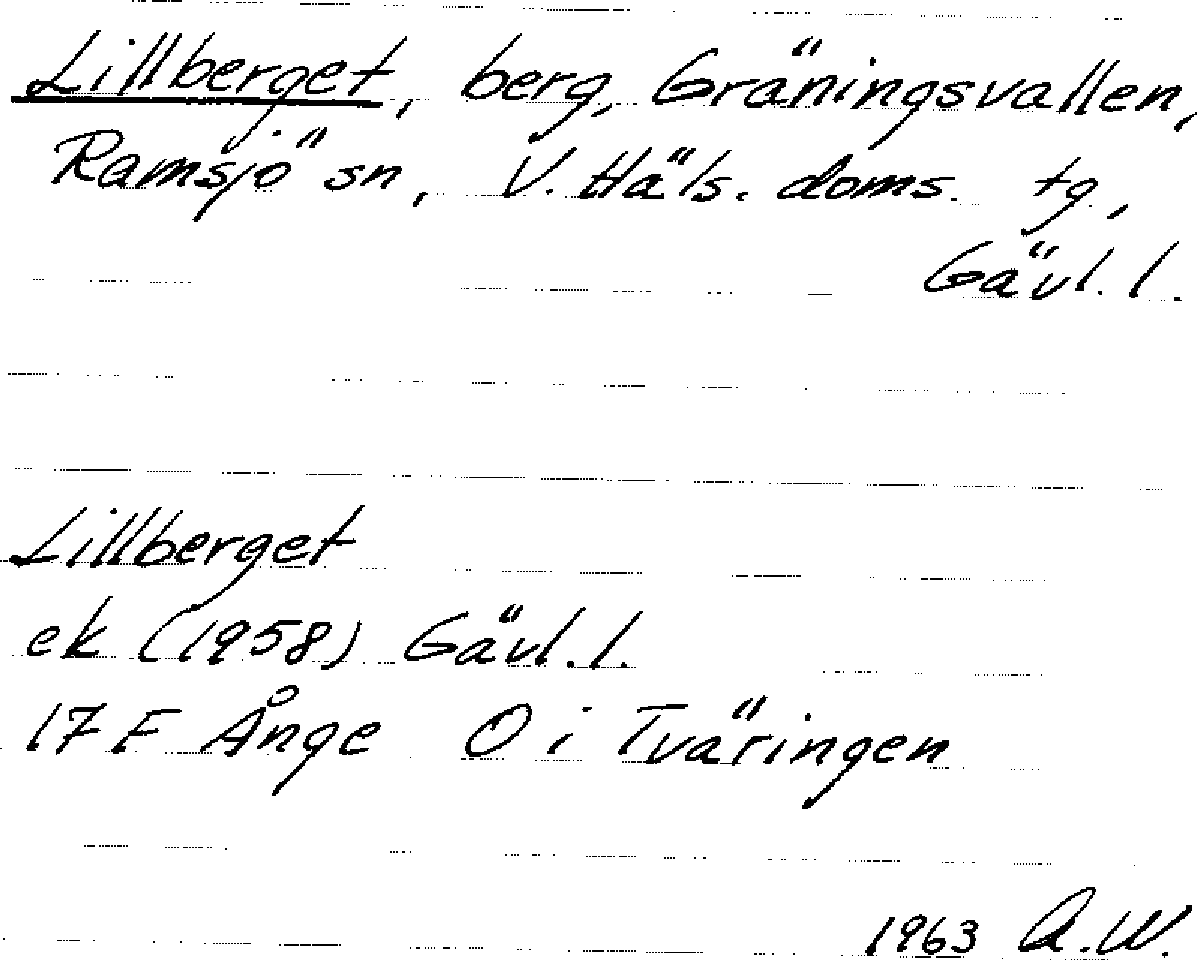 Lillberget, berg, Gräningsvallen,
Ramsjö sn, V. Häls. doms. tg,
Gävl. l.
Lillberget
ek (1958) Gävl. l.
17 F Ånge O i Tväringen
1963 A.W.